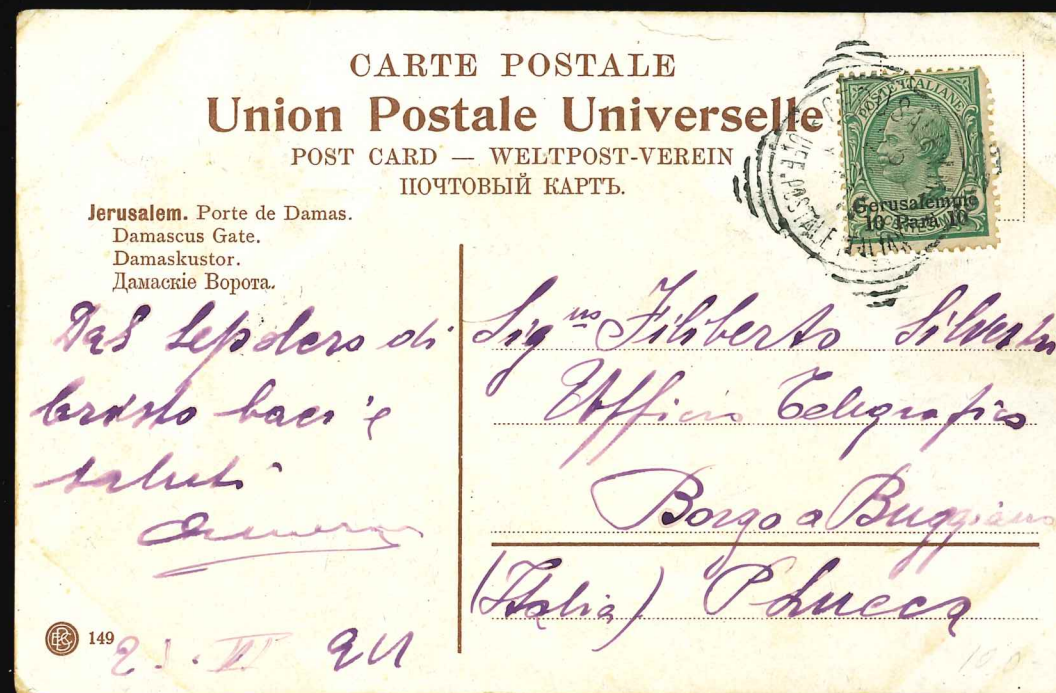 CARTE POSTALE
Union Postale Universelle
POST CARD — WELTPOST-VEREIN
ПОЧТОВЫЙ КАРТЪ.
POSTE ITALIANE
Gerusalemme
10 Parà 10
Jerusalem. Porte de Damas.
Damascus Gate.
Damaskustor.
Дамаскіе Ворота.
Dal Sepolcro di
Cristo baci e
saluti
149
Sig.no Filiberto
Ufficio Telegrafico
Borgo a Buggiano
(Italia) P Lucca